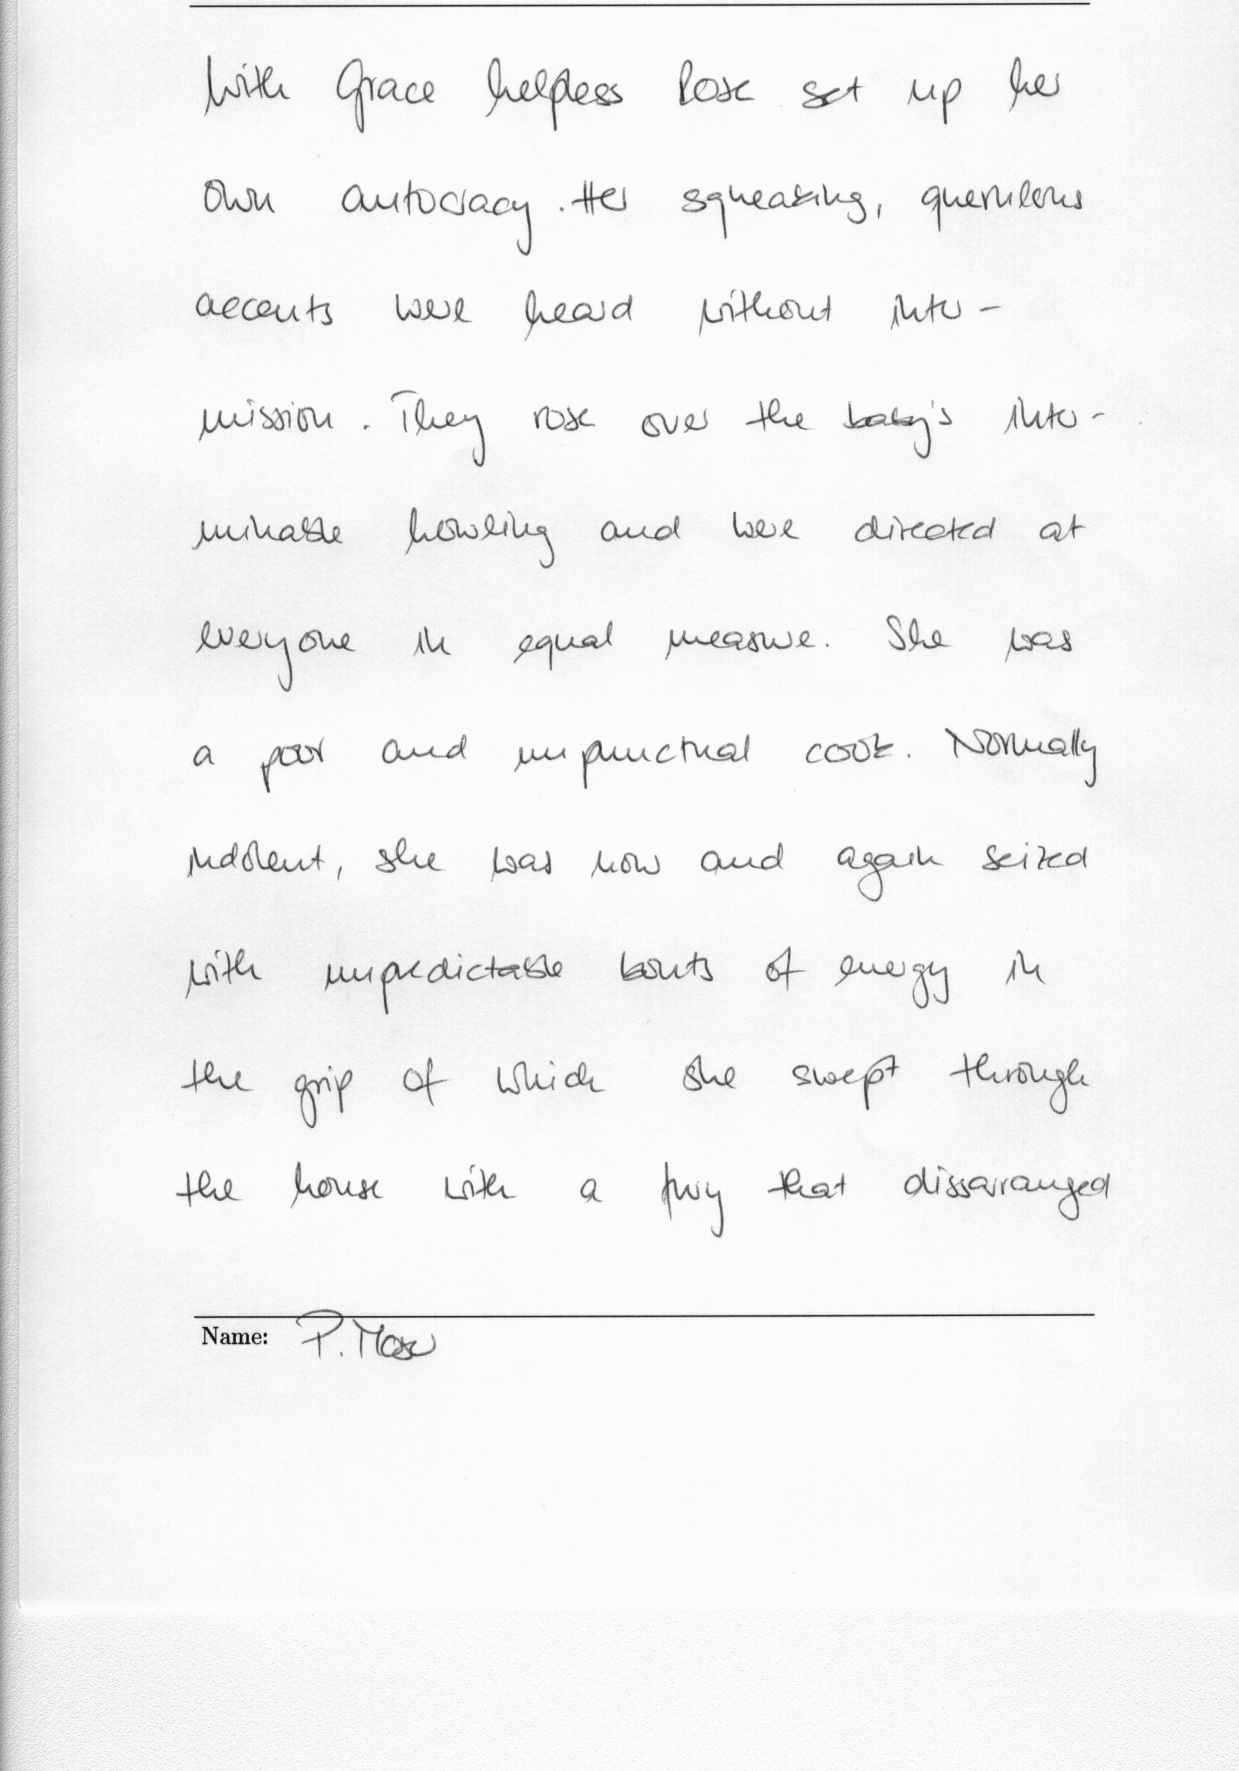 With Grace helpless Rose set up her
own autocracy. Her squeaking, querulous
accents were heard without inter-
mission. They rose over the baby's inter-
minable howling and were directed at
everyone in equal measure. She was
a poor and unpunctual cook. Normally
indolent, she was now and again seized
with unpredictable bouts of energy in
the grip of which she swept through
the house with a fury that dissarranged
Name: P.